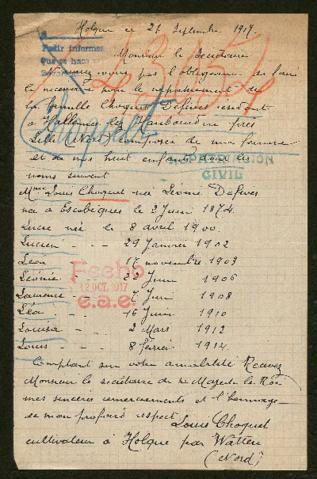 Holque ce 21 Septembre 1917.
Pedir informes
Que se haga
Monsieur le Secrétaire
pas l'obligeance de faire
le nécessaire pour le rapatriement de
la famille Choquet Defives restant
à Hallennes lez Haubourdin près
Lille (Nord) composée de ma femme
et de nos huit enfants dont les
REPATRIACIÓN
CIVIL
noms suivent
Mme Louis Choquet née Léonie Defives
née à Escobecques le 3 Juin 1874.
Lucie née le 8 avril 1900.
Lucien - - - 29 Janvier 1902
Léon - - 17 novembre 1903
Léonie - 22 Juin 1906
Laurence - 7 Juin 1908
Léa - 16 Juin 1910
Louisa - 2 Mars 1912
Louis - 8 février 1914.
Fecho
12 OCT. 1917
e.a.e.
Comptant sur votre amabilité Recevez
Monsieur le secrétaire de sa Majesté le Roi
mes sincères remerciements et l'hommage
de mon profond respect
Louis Choquet
cultivateur à Holque par Watten
(Nord)